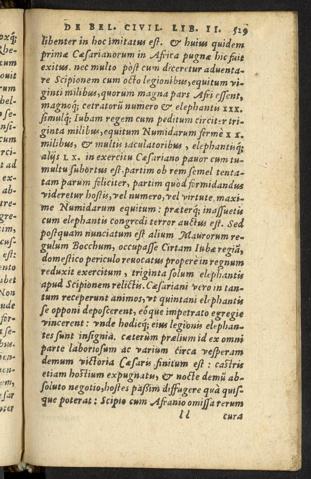 DE BEL. CIVIL. LIB. II. 529
libenter in hoc imitatus est. & huius quidem
primæ Cæsarianorum in Africa pugnæ hic fuit
exitus. nec multo pòst cum diceretur aduenta-
re Scipionem cum octo legionibus, equitum vi-
ginti milibus, quorum magna pars Afri essent,
magnoq; cetratorũ numero & elephantis XXX.
simulq; Iubam regem cum peditum circiter tri
ginta milibus, equitum Numidarum fermè XX.
milibus, & multis iaculatoribus, elephantisq;
alijs LX. in exercitu Cæsariano pauor cum tu-
multu subortus est. partim ob rem semel tenta-
tam parum feliciter, partim quòd formidandus
videretur hostis, vel numero, vel virtute. maxi-
me Numidarum equitum: præterq; inassuetis
cum elephantis congredi terror auctus est. Sed
postquam nunciatum est alium Maurorum re-
gulum Bocchum, occupasse Cirtam Iubæ regiã,
domestico periculo reuocatus properè in regnum
reduxit exercitum, triginta solum elephantis
apud Scipionem relictis. Cæsariani vero in tan-
tum receperunt animos, vt quintani elephantis
se opponi deposcerent, eoque impetrato egregie
vincerent: vnde hodieq; eius legionis elephan-
tes sunt insignia. cæterùm prælium id ex omni
parte laboriosum ac varium circa vesperam
demum victoria Cæsaris finitum est: castris
etiam hostium expugnatis, & nocte demũ ab-
soluto negotio, hostes passim diffugere quà quis-
que poterat: Scipio cum Afranio omissa rerum
ll cura